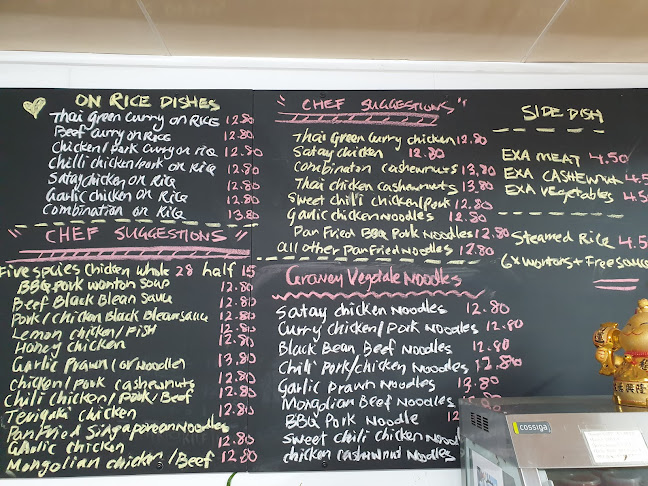 ON RICE DISHES
Thai Green Curry on RICE 12.80
Beef Curry on RICE 12.80
Chicken/pork Curry on ric 12.80
Chilli chicken/pork on Rice 12.80
Satay chicken on Rice 12.80
Garlic chicken on Rice 12.80
Combination on Rice 13.80
"CHEF SUGGESTIONS"
Five spcies chicken whole 28 half 15
BBQ pork wonton soup 12.80
Beef Black Blean Sauce 12.80
Pork/chicken Black Blean sauce 12.80
Lemon chicken/FISH 12.80
Honey chicken 12.80
Garlic Prawn (or Noodle) 13.80
chicken/pork cashewnuts 12.80
Chili chicken/Pork/Beef 12.80
Teriyaki chicken 12.80
Pan Fried Singaporean Noodles
Garlic chicken 12.80
Mongolian chicken/Beef 12.80
"CHEF SUGGESTIONS"
Thai Green Curry chicken 12.80
Satay chicken 12.80
Combination cashewnuts 13.80
Thai chicken cashewnuts 13.80
Sweet chilli chicken/pork 12.80
Garlic chicken Noodles 12.80
Pan Fried BBQ Pork Noodles 12.80
all other Pan Fried Noodles 12.80
Gravey Vegetable Noodles
Satay chicken Noodles 12.80
Curry chicken/Pork Noodles 12.80
Black Bean Beef Noodles 12.80
Chili Pork/chicken Noodles 12.80
Garlic prawn Noodles 13.80
Mongolian Beef Noodles 12.80
BBQ Pork Noodle
Sweet chili chicken Noodles
chicken cashewnut Noodles
SIDE DISH
EXA MEAT 4.50
EXA CASHEWNUT 4.5
EXA vegetables 4.5
Steamed Rice 4.5
6x wontons + Free sauce
cossiga